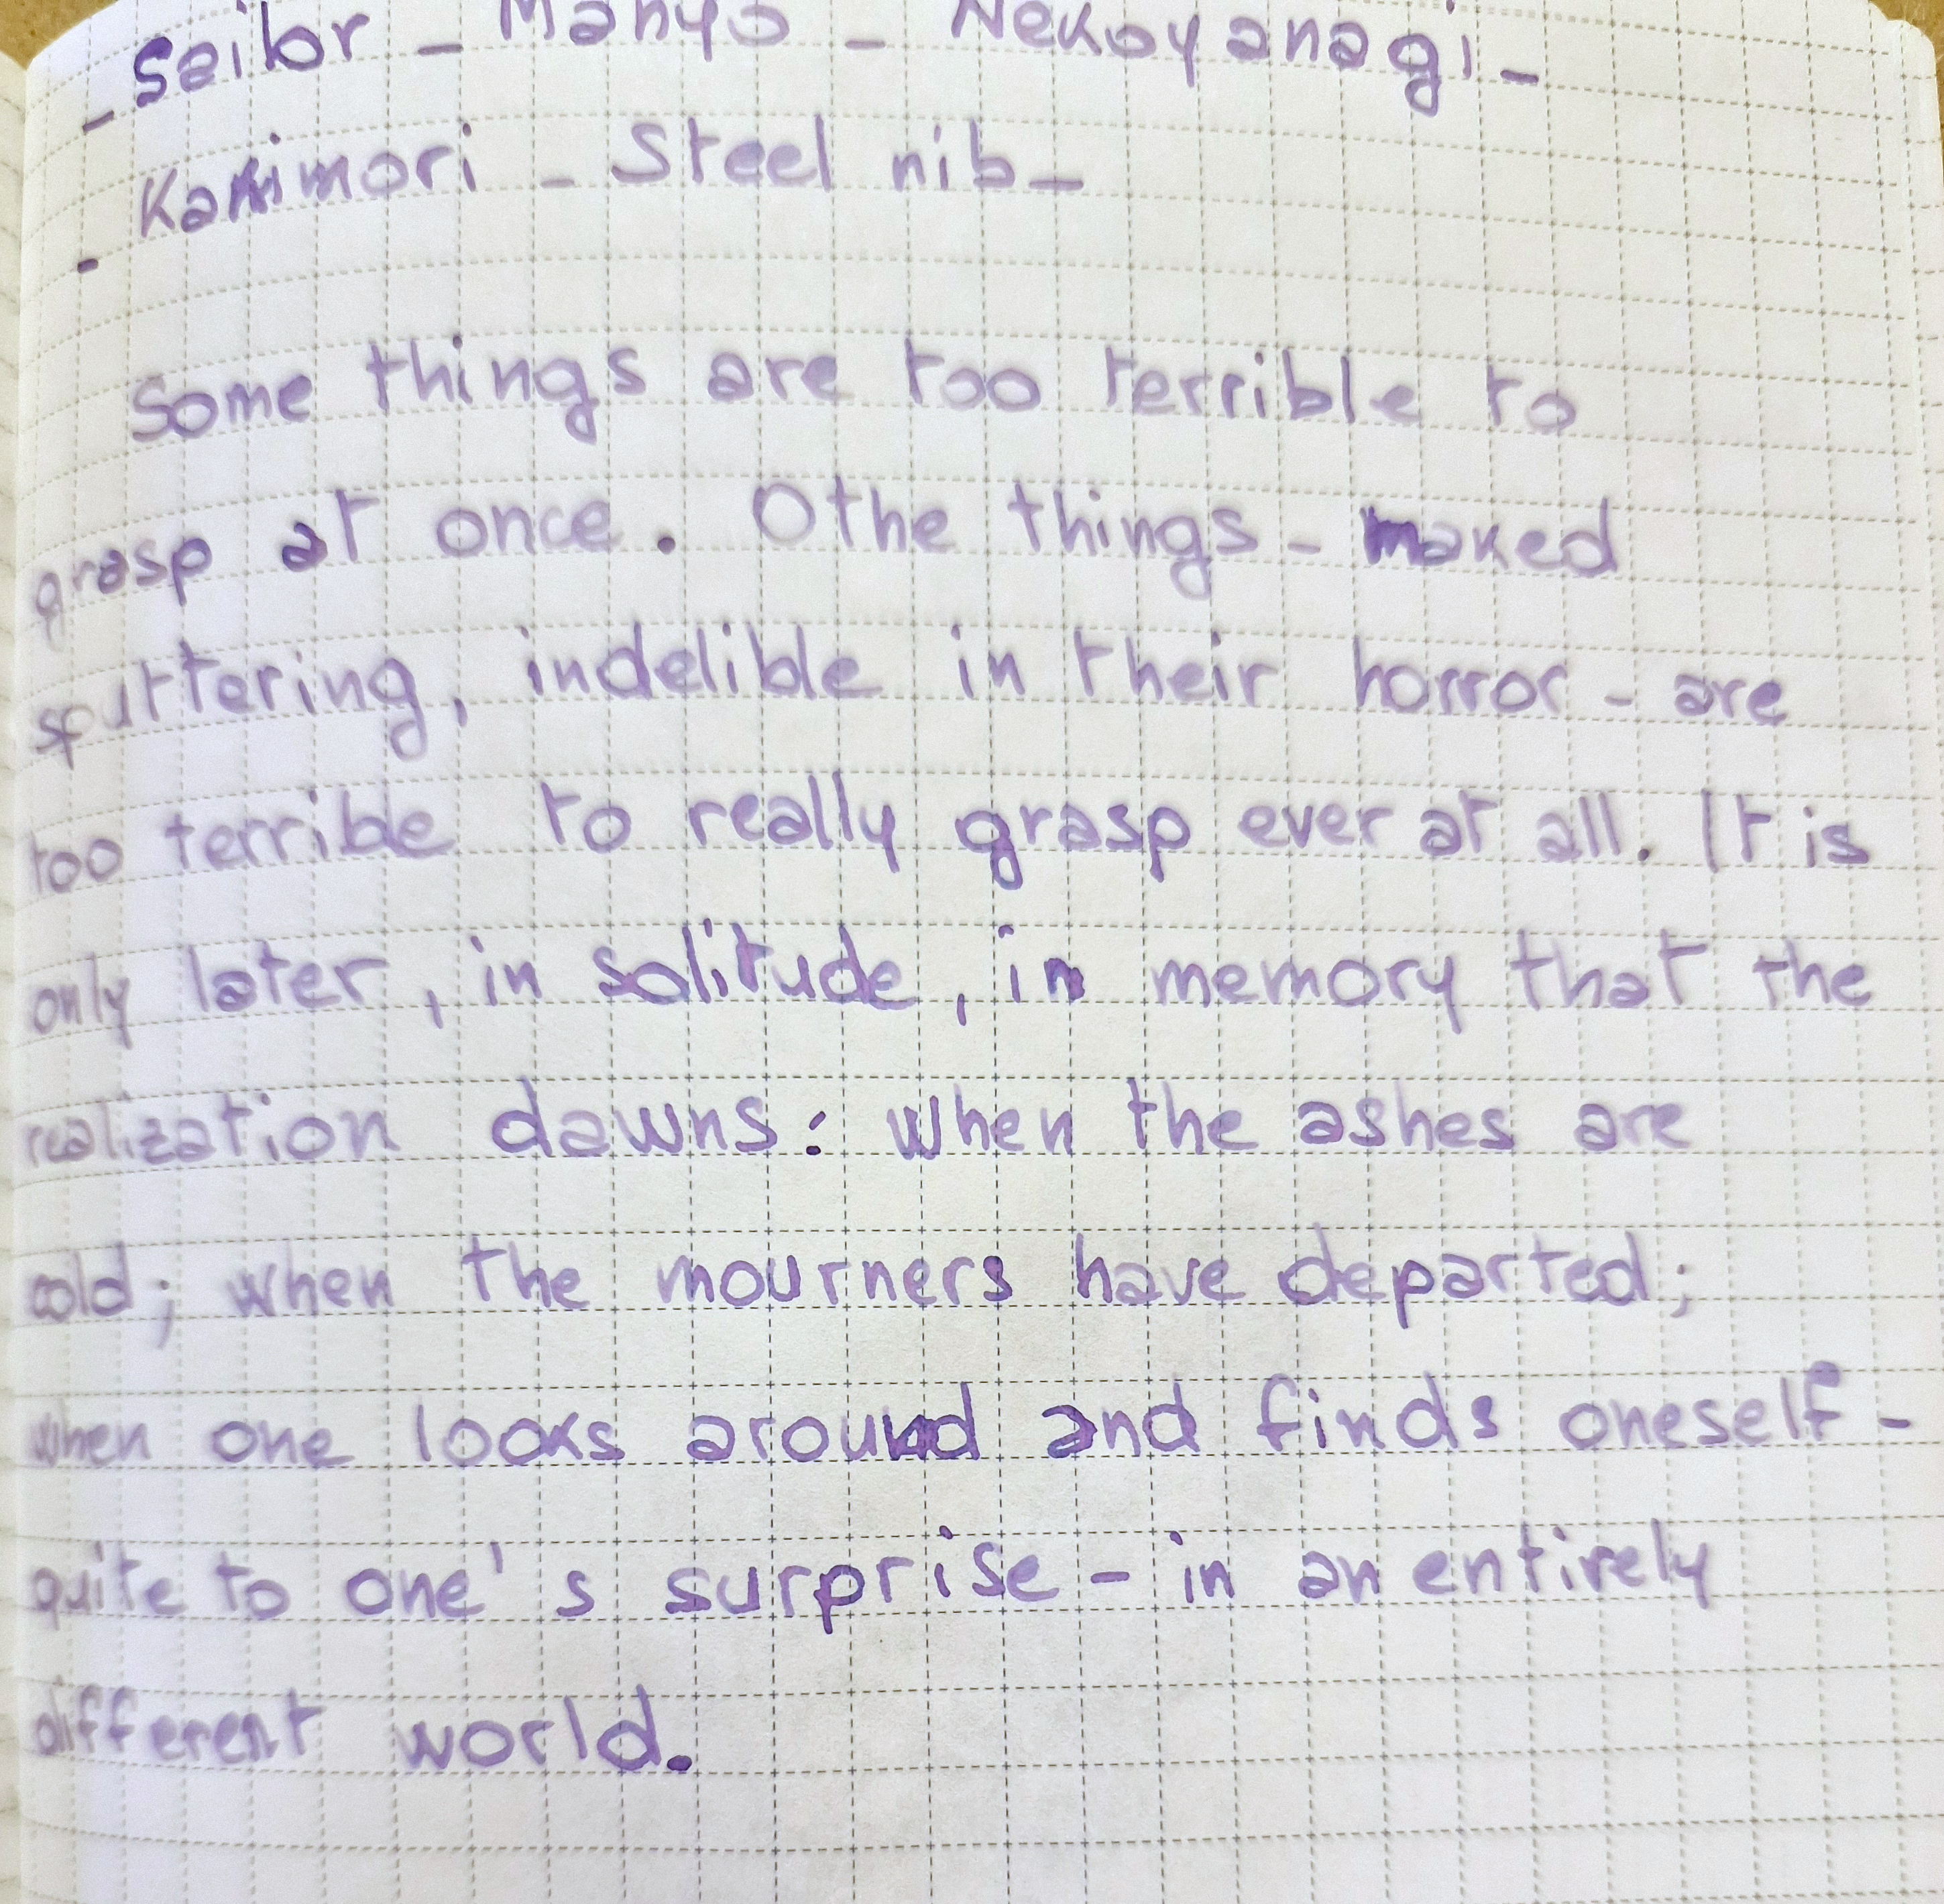 - Sailor - Manyo - Nekoyanagi -
- Kakimori - Steel nib -
Some things are too terrible to
grasp at once. Othe things - maked
sputtering, indelible in their horror - are
too terrible to really grasp ever at all. It is
only later, in solitude, in memory that the
realization dawns: when the ashes are
cold; when the mourners have departed;
when one looks around and finds oneself -
quite to one's surprise - in an entirely
different world.